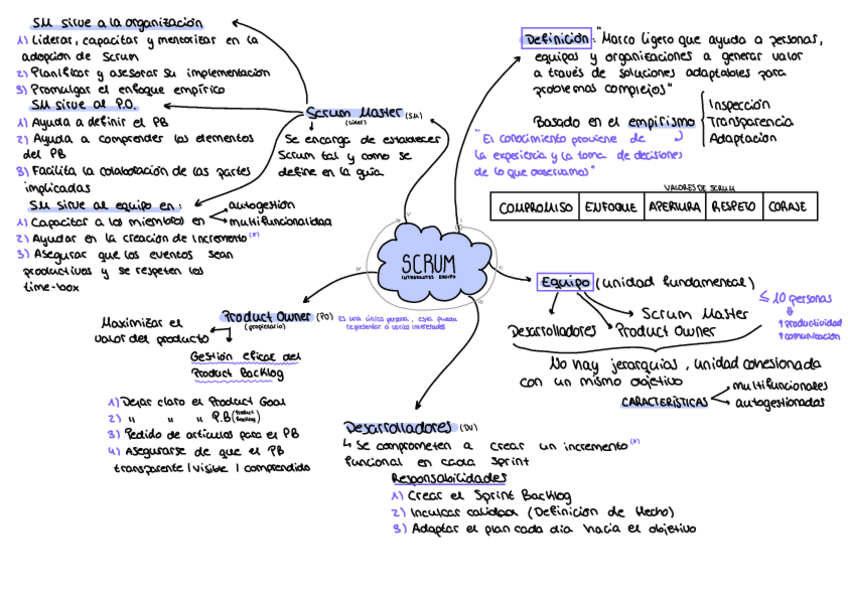 SM sirve a la organización
1) Liderar, capacitar y mentorizar en la
adopción de Scrum
2) Planificar y asesorar su implementación
3) Promulgar el enfoque empírico
SM sirve al P.O.
1) Ayuda a definir el PB
2) Ayuda a comprender los elementos
del PB
3) Facilita la colaboración de las partes
implicadas
SM sirve al equipo en:
1) Capacitar a los miembros en
autogestión
multifuncionalidad
2) Ayudar en la creación de incremento
3) Asegurar que los eventos sean
productivos y se respeten los
time-box
Scrum Master (SM)
(líder)
Se encarga de establecer
Scrum tal y como se
define en la guía
Definición: "Marco ligero que ayuda a personas,
equipos y organizaciones a generar valor
a través de soluciones adaptables para
problemas complejos"
Basado en el empirismo
Inspección
Transparencia
Adaptación
"El conocimiento proviene de
la experiencia y la toma de decisiones
de lo que observamos"
VALORES DE SCRUM
COMPROMISO ENFOQUE APERTURA RESPETO CORAJE
SCRUM
INTEGRANTES EQUIPO
Equipo (unidad fundamental)
Scrum Master
Product Owner
Desarrolladores
≤ 10 personas
↑ productividad
↑ comunicación
No hay jerarquías, unidad cohesionada
con un mismo objetivo
CARACTERÍSTICAS
multifuncionales
autogestionados
Product Owner (PO)
(propietario)
Es una única persona, esta puede
representar a varios interesados
Maximizar el
valor del producto
Gestión eficaz del
Product Backlog
1) Dejar claro el Product Goal
2) " " " P.B (Product Backlog)
3) Pedido de artículos para el PB
4) Asegurarse de que el PB
transparente | visible | comprendido
Desarrolladores (DV)
↳ Se comprometen a crear un incremento
funcional en cada sprint
Responsabilidades
1) Crear el Sprint Backlog
2) Inculcar calidad (Definición de Hecho)
3) Adaptar el plan cada día hacia el objetivo